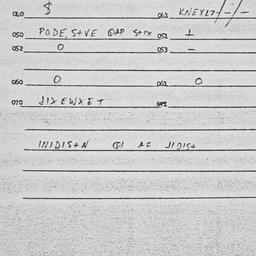 010 $ 012 KNEYL7-/-/-
050 PODE, S+VE QAP S+IX 051 1
052 0 053 —
060 0 061 0
070 JIXEWXET
INIDIS+N QI AF JIDIS+